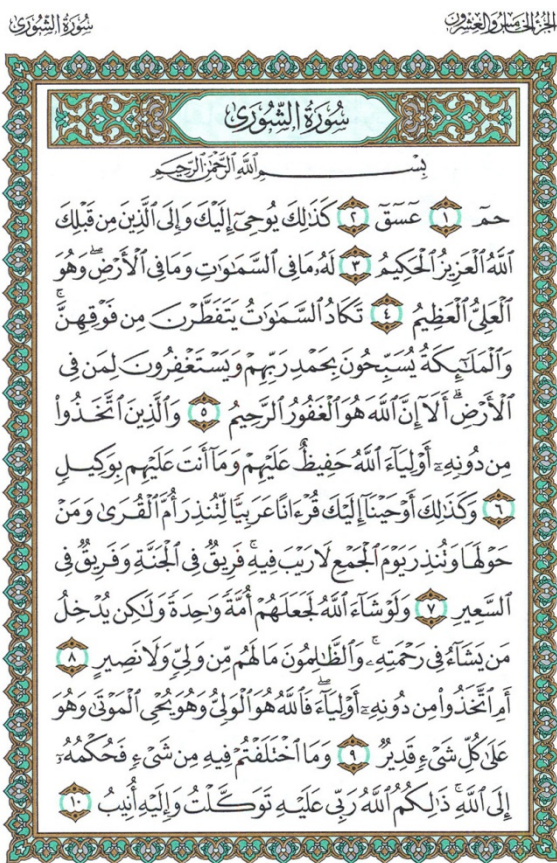 سُورَةُ الشُّورَىٰ
الجُزْءُ الخَامِسُ وَالعِشْرُونَ
سُورَةُ الشُّورَىٰ
بِسْمِ اللَّهِ الرَّحْمَٰنِ الرَّحِيمِ
حمٓ ١ عٓسٓقٓ ٢ كَذَٰلِكَ يُوحِىٓ إِلَيْكَ وَإِلَى ٱلَّذِينَ مِن قَبْلِكَ
ٱللَّهُ ٱلْعَزِيزُ ٱلْحَكِيمُ ٣ لَهُۥ مَا فِى ٱلسَّمَٰوَٰتِ وَمَا فِى ٱلْأَرْضِ ۖ وَهُوَ
ٱلْعَلِىُّ ٱلْعَظِيمُ ٤ تَكَادُ ٱلسَّمَٰوَٰتُ يَتَفَطَّرْنَ مِن فَوْقِهِنَّ ۚ
وَٱلْمَلَٰٓئِكَةُ يُسَبِّحُونَ بِحَمْدِ رَبِّهِمْ وَيَسْتَغْفِرُونَ لِمَن فِى
ٱلْأَرْضِ ۗ أَلَآ إِنَّ ٱللَّهَ هُوَ ٱلْغَفُورُ ٱلرَّحِيمُ ٥ وَٱلَّذِينَ ٱتَّخَذُوا۟
مِن دُونِهِۦٓ أَوْلِيَآءَ ٱللَّهُ حَفِيظٌ عَلَيْهِمْ وَمَآ أَنتَ عَلَيْهِم بِوَكِيلٍ
٦ وَكَذَٰلِكَ أَوْحَيْنَآ إِلَيْكَ قُرْءَانًا عَرَبِيًّا لِّتُنذِرَ أُمَّ ٱلْقُرَىٰ وَمَنْ
حَوْلَهَا وَتُنذِرَ يَوْمَ ٱلْجَمْعِ لَا رَيْبَ فِيهِ ۚ فَرِيقٌ فِى ٱلْجَنَّةِ وَفَرِيقٌ فِى
ٱلسَّعِيرِ ٧ وَلَوْ شَآءَ ٱللَّهُ لَجَعَلَهُمْ أُمَّةً وَٰحِدَةً وَلَٰكِن يُدْخِلُ
مَن يَشَآءُ فِى رَحْمَتِهِۦ ۚ وَٱلظَّٰلِمُونَ مَا لَهُم مِّن وَلِىٍّ وَلَا نَصِيرٍ ٨
أَمِ ٱتَّخَذُوا۟ مِن دُونِهِۦٓ أَوْلِيَآءَ ۖ فَٱللَّهُ هُوَ ٱلْوَلِىُّ وَهُوَ يُحْىِ ٱلْمَوْتَىٰ وَهُوَ
عَلَىٰ كُلِّ شَىْءٍ قَدِيرٌ ٩ وَمَا ٱخْتَلَفْتُمْ فِيهِ مِن شَىْءٍ فَحُكْمُهُۥٓ
إِلَى ٱللَّهِ ۚ ذَٰلِكُمُ ٱللَّهُ رَبِّى عَلَيْهِ تَوَكَّلْتُ وَإِلَيْهِ أُنِيبُ ١٠